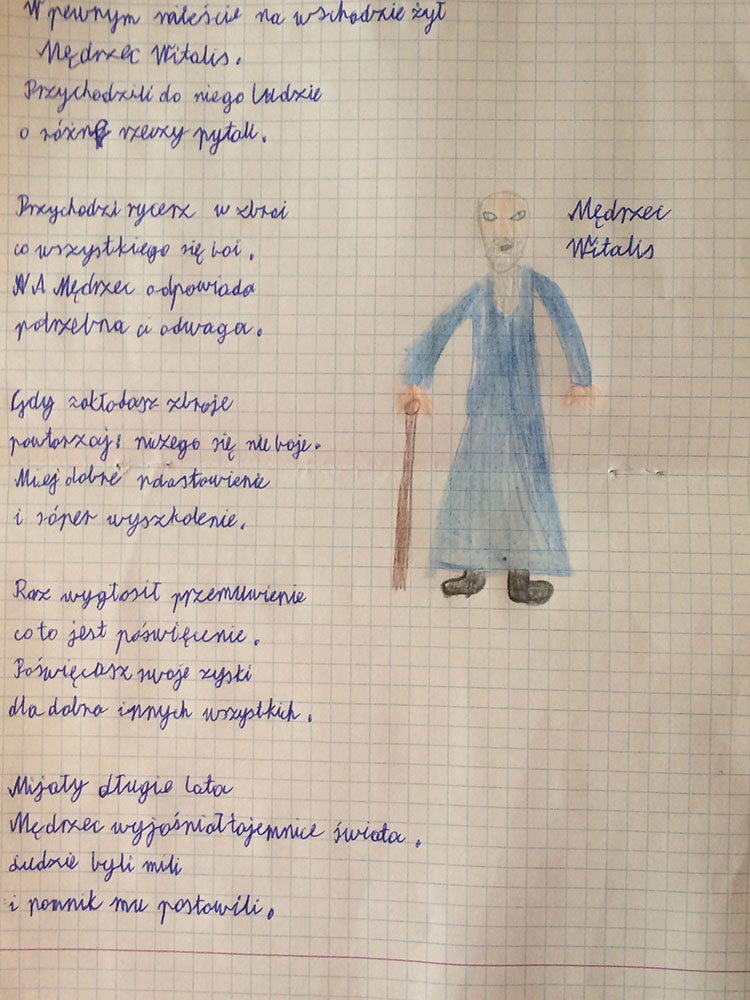 W pewnym mieście na wschodzie żył
Mędrzec Witalis.
Przychodzili do niego ludzie
o różne rzeczy pytali.
Przychodzi rycerz w zbroi
co wszystkiego się boi.
A Mędrzec odpowiada
potrzebna ci odwaga.
Gdy zakłodasz zbroje
powtarzaj: niczego się nie boje.
Miej dobre ndastowienie
i súper wyszkolenie.
Raz wygłosił przemuwienie
co to jest poświęcenie.
Poświęcasz swoje zyski
dla dobra innych wszystkich.
Mijały długie lata
Mędrzec wyjaśniał tajemnice świata.
Ludzie byli mili
i pomnik mu postawili.
Mędrzec
Witalis